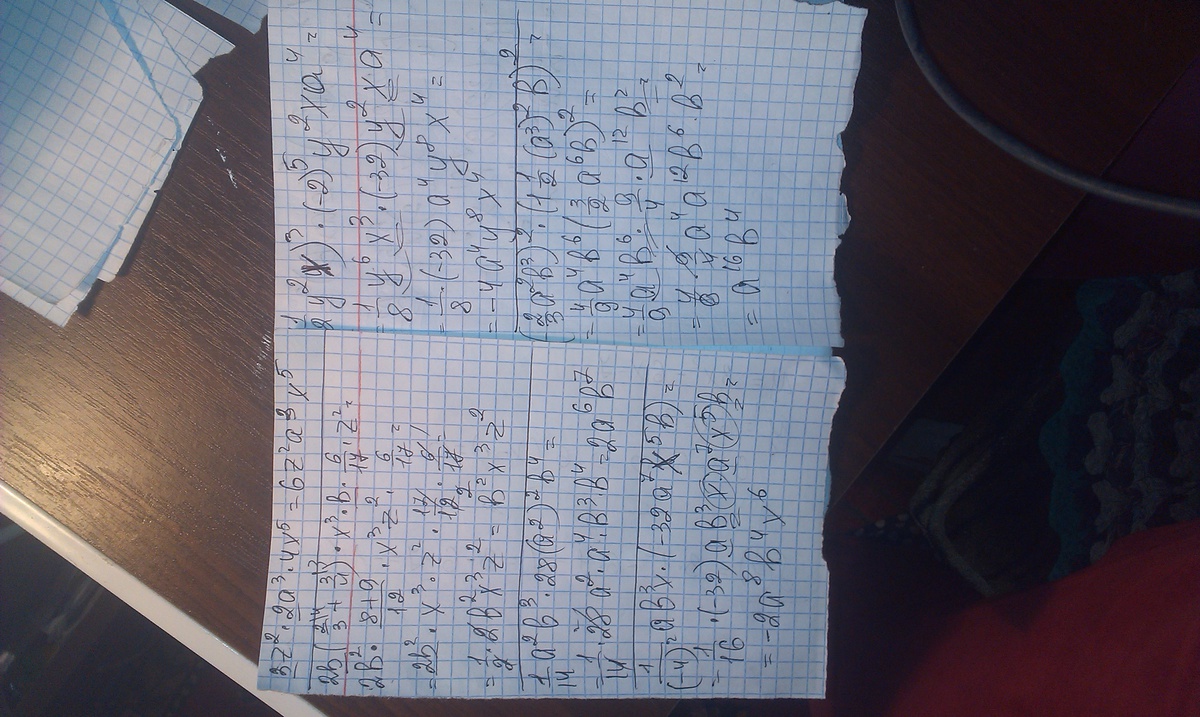 3z² · 2a³ · 4x⁵ = 6z²a³x⁵
2в(2/3 + 3/4) · x³ · в · 6/17 · z² =
2в² · (8+9)/12 · x³z² · 6/17 =
= 2в² · x³ · z² · 17/12 · 6/17 =
= 1/2 · 2в²x³z² = в²x³z²
1/14 a²в³ · 28(a²)²в⁴ =
= 1/14 · 28 a² · a⁴ · в³ · в⁴ = 2a⁶в⁷
1/(-4)² aв³x · (-32a⁷x⁵в) =
= 1/16 · (-32) aв³x · a⁷x⁵в =
= -2a⁸в⁴x⁶
(1/2 y²x)³ · (-2)⁵y²xa⁴ =
= 1/8 y⁶x³ · (-32)y²xa⁴ =
= 1/8 · (-32)a⁴y⁸x⁴ =
= -4a⁴y⁸x⁴
(2/3 a²в³)² · (1 1/2 (a³)²в)² =
= 4/9 a⁴в⁶ (3/2 a⁶в)² =
= 4/9 a⁴в⁶ · 9/4 · a¹² в² =
a⁴a¹²в⁶ · в² =
= a¹⁶в⁴